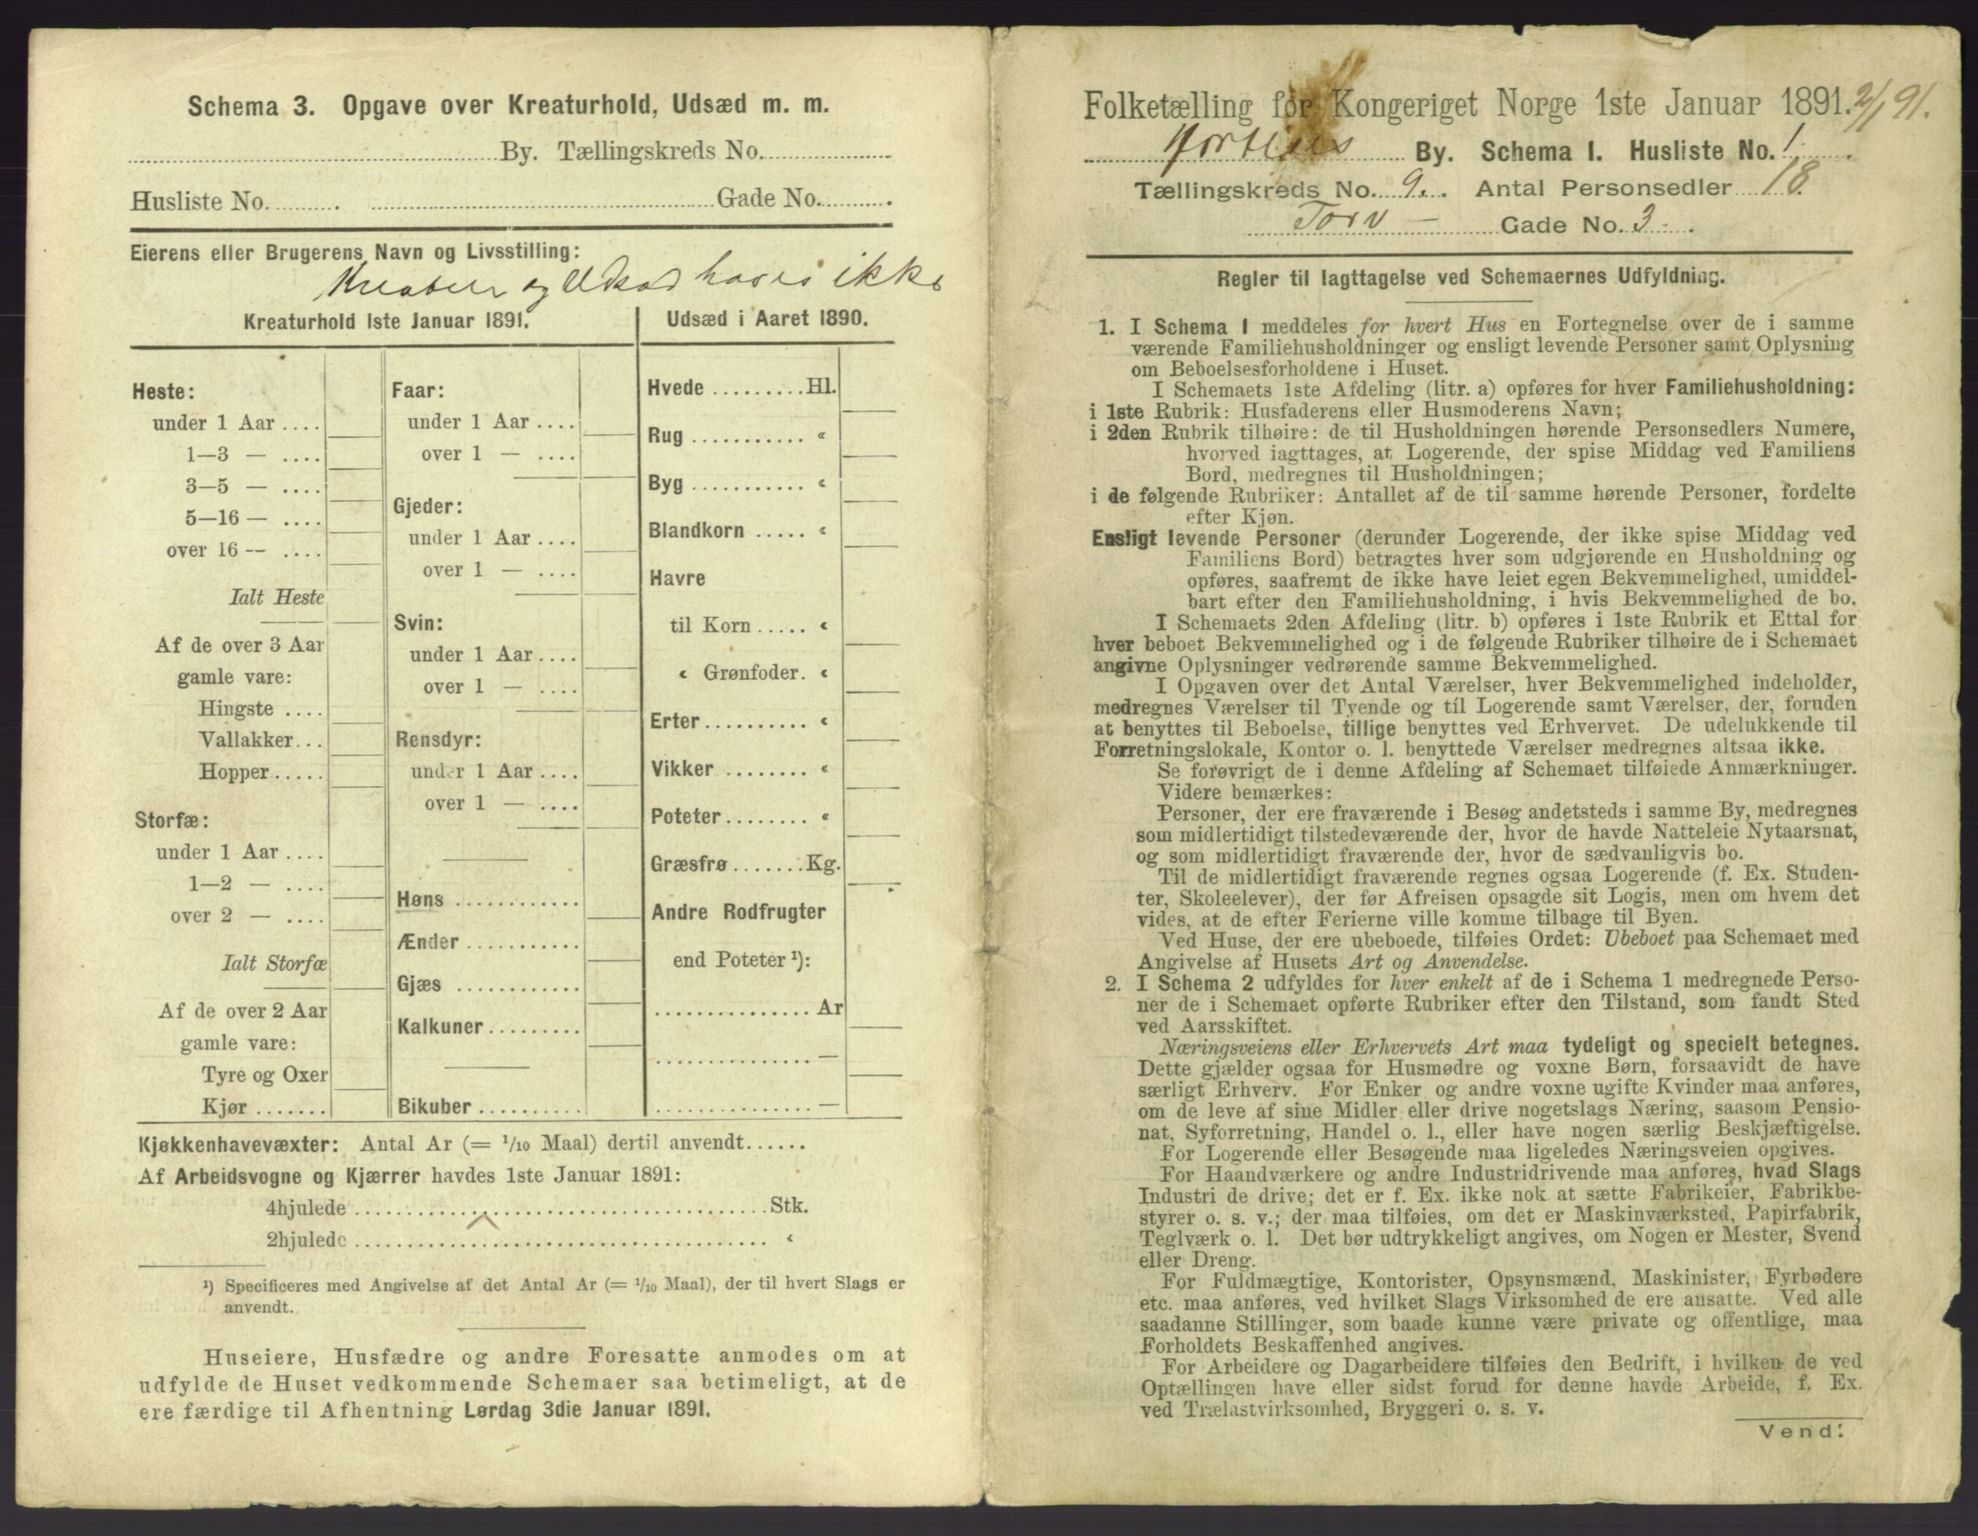 Schema 3. Opgave over Kreaturhold, Udsæd m. m.
By. Tællingskreds No.
Husliste No. Gade No.
Eierens eller Brugerens Navn og Livsstilling:
Kreaturer og Udsæd haves ikke
Kreaturhold 1ste Januar 1891.
Heste:
under 1 Aar ....
1—3 — ....
3—5 — ....
5—16 — ....
over 16 — ....
Ialt Heste
Af de over 3 Aar
gamle vare:
Hingste ....
Vallakker...
Hopper.....
Storfæ:
under 1 Aar ....
1—2 — ....
over 2 — ....
Ialt Storfæ
Af de over 2 Aar
gamle vare:
Tyre og Oxer
Kjør .......
Faar:
under 1 Aar ....
over 1 — ....
Gjeder:
under 1 Aar ....
over 1 — ....
Svin:
under 1 Aar ....
over 1 — ....
Rensdyr:
under 1 Aar ....
over 1 — ....
Høns ............
Ænder ...........
Gjæs ............
Kalkuner.........
Bikuber ..........
Udsæd i Aaret 1890.
Hvede .........Hl.
Rug ........... «
Byg ........... «
Blandkorn ..... «
Havre
til Korn ..... «
« Grønfoder. «
Erter.......... «
Vikker ........ «
Poteter........ «
Græsfrø .......Kg.
Andre Rodfrugter
end Poteter ¹):
............... Ar
............... —
............... —
Kjøkkenhavevæxter: Antal Ar (= 1/10 Maal) dertil anvendt......
Af Arbeidsvogne og Kjærrer havdes 1ste Januar 1891:
4hjulede ........................................Stk.
2hjulede ........................................ «
¹) Specificeres med Angivelse af det Antal Ar (= 1/10 Maal), der til hvert Slags er
anvendt.
Huseiere, Husfædre og andre Foresatte anmodes om at
udfylde de Huset vedkommende Schemaer saa betimeligt, at de
ere færdige til Afhentning Lørdag 3die Januar 1891.
Folketælling for Kongeriget Norge 1ste Januar 1891. 2/1 91.
Hortens By. Schema I. Husliste No. 1
Tællingskreds No. 9. Antal Personsedler 18
Torv — Gade No. 3
Regler til Iagttagelse ved Schemaernes Udfyldning.
1. I Schema 1 meddeles for hvert Hus en Fortegnelse over de i samme
værende Familiehusholdninger og ensligt levende Personer samt Oplysning
om Beboelsesforholdene i Huset.
I Schemaets 1ste Afdeling (litr. a) opføres for hver Familiehusholdning:
i 1ste Rubrik: Husfaderens eller Husmoderens Navn;
i 2den Rubrik tilhøire: de til Husholdningen hørende Personsedlers Numere,
hvorved iagttages, at Logerende, der spise Middag ved Familiens
Bord, medregnes til Husholdningen;
i de følgende Rubriker: Antallet af de til samme hørende Personer, fordelte
efter Kjøn.
Ensligt levende Personer (derunder Logerende, der ikke spise Middag ved
Familiens Bord) betragtes hver som udgjørende en Husholdning og
opføres, saafremt de ikke have leiet egen Bekvemmelighed, umiddel-
bart efter den Familiehusholdning, i hvis Bekvemmelighed de bo.
I Schemaets 2den Afdeling (litr. b) opføres i 1ste Rubrik et Ettal for
hver beboet Bekvemmelighed og i de følgende Rubriker tilhøire de i Schemaet
angivne Oplysninger vedrørende samme Bekvemmelighed.
I Opgaven over det Antal Værelser, hver Bekvemmelighed indeholder,
medregnes Værelser til Tyende og til Logerende samt Værelser, der, foruden
at benyttes til Beboelse, tillige benyttes ved Erhvervet. De udelukkende til
Forretningslokale, Kontor o. l. benyttede Værelser medregnes altsaa ikke.
Se forøvrigt de i denne Afdeling af Schemaet tilføiede Anmærkninger.
Videre bemærkes:
Personer, der ere fraværende i Besøg andetsteds i samme By, medregnes
som midlertidigt tilstedeværende der, hvor de havde Natteleie Nytaarsnat,
og som midlertidigt fraværende der, hvor de sædvanligvis bo.
Til de midlertidigt fraværende regnes ogsaa Logerende (f. Ex. Studen-
ter, Skoleelever), der før Afreisen opsagde sit Logis, men om hvem det
vides, at de efter Ferierne ville komme tilbage til Byen.
Ved Huse, der ere ubeboede, tilføies Ordet: Ubeboet paa Schemaet med
Angivelse af Husets Art og Anvendelse.
2. I Schema 2 udfyldes for hver enkelt af de i Schema 1 medregnede Perso-
ner de i Schemaet opførte Rubriker efter den Tilstand, som fandt Sted
ved Aarsskiftet.
Næringsveiens eller Erhvervets Art maa tydeligt og specielt betegnes.
Dette gjælder ogsaa for Husmødre og voxne Børn, forsaavidt de have
særligt Erhverv. For Enker og andre voxne ugifte Kvinder maa anføres,
om de leve af sine Midler eller drive nogetslags Næring, saasom Pensio-
nat, Syforretning, Handel o. l., eller have nogen særlig Beskjæftigelse.
For Logerende eller Besøgende maa ligeledes Næringsveien opgives.
For Haandværkere og andre Industridrivende maa anføres, hvad Slags
Industri de drive; det er f. Ex. ikke nok at sætte Fabrikeier, Fabrikbe-
styrer o. s. v.; der maa tilføies, om det er Maskinværksted, Papirfabrik,
Teglværk o. l. Det bør udtrykkeligt angives, om Nogen er Mester, Svend
eller Dreng.
For Fuldmægtige, Kontorister, Opsynsmænd, Maskinister, Fyrbødere
etc. maa anføres, ved hvilket Slags Virksomhed de ere ansatte. Ved alle
saadanne Stillinger, som baade kunne være private og offentlige, maa
Forholdets Beskaffenhed angives.
For Arbeidere og Dagarbeidere tilføies den Bedrift, i hvilken de ved
Optællingen have eller sidst forud for denne havde Arbeide, f. Ex.
ved Trælastvirksomhed, Bryggeri o. s. v.
Vend!